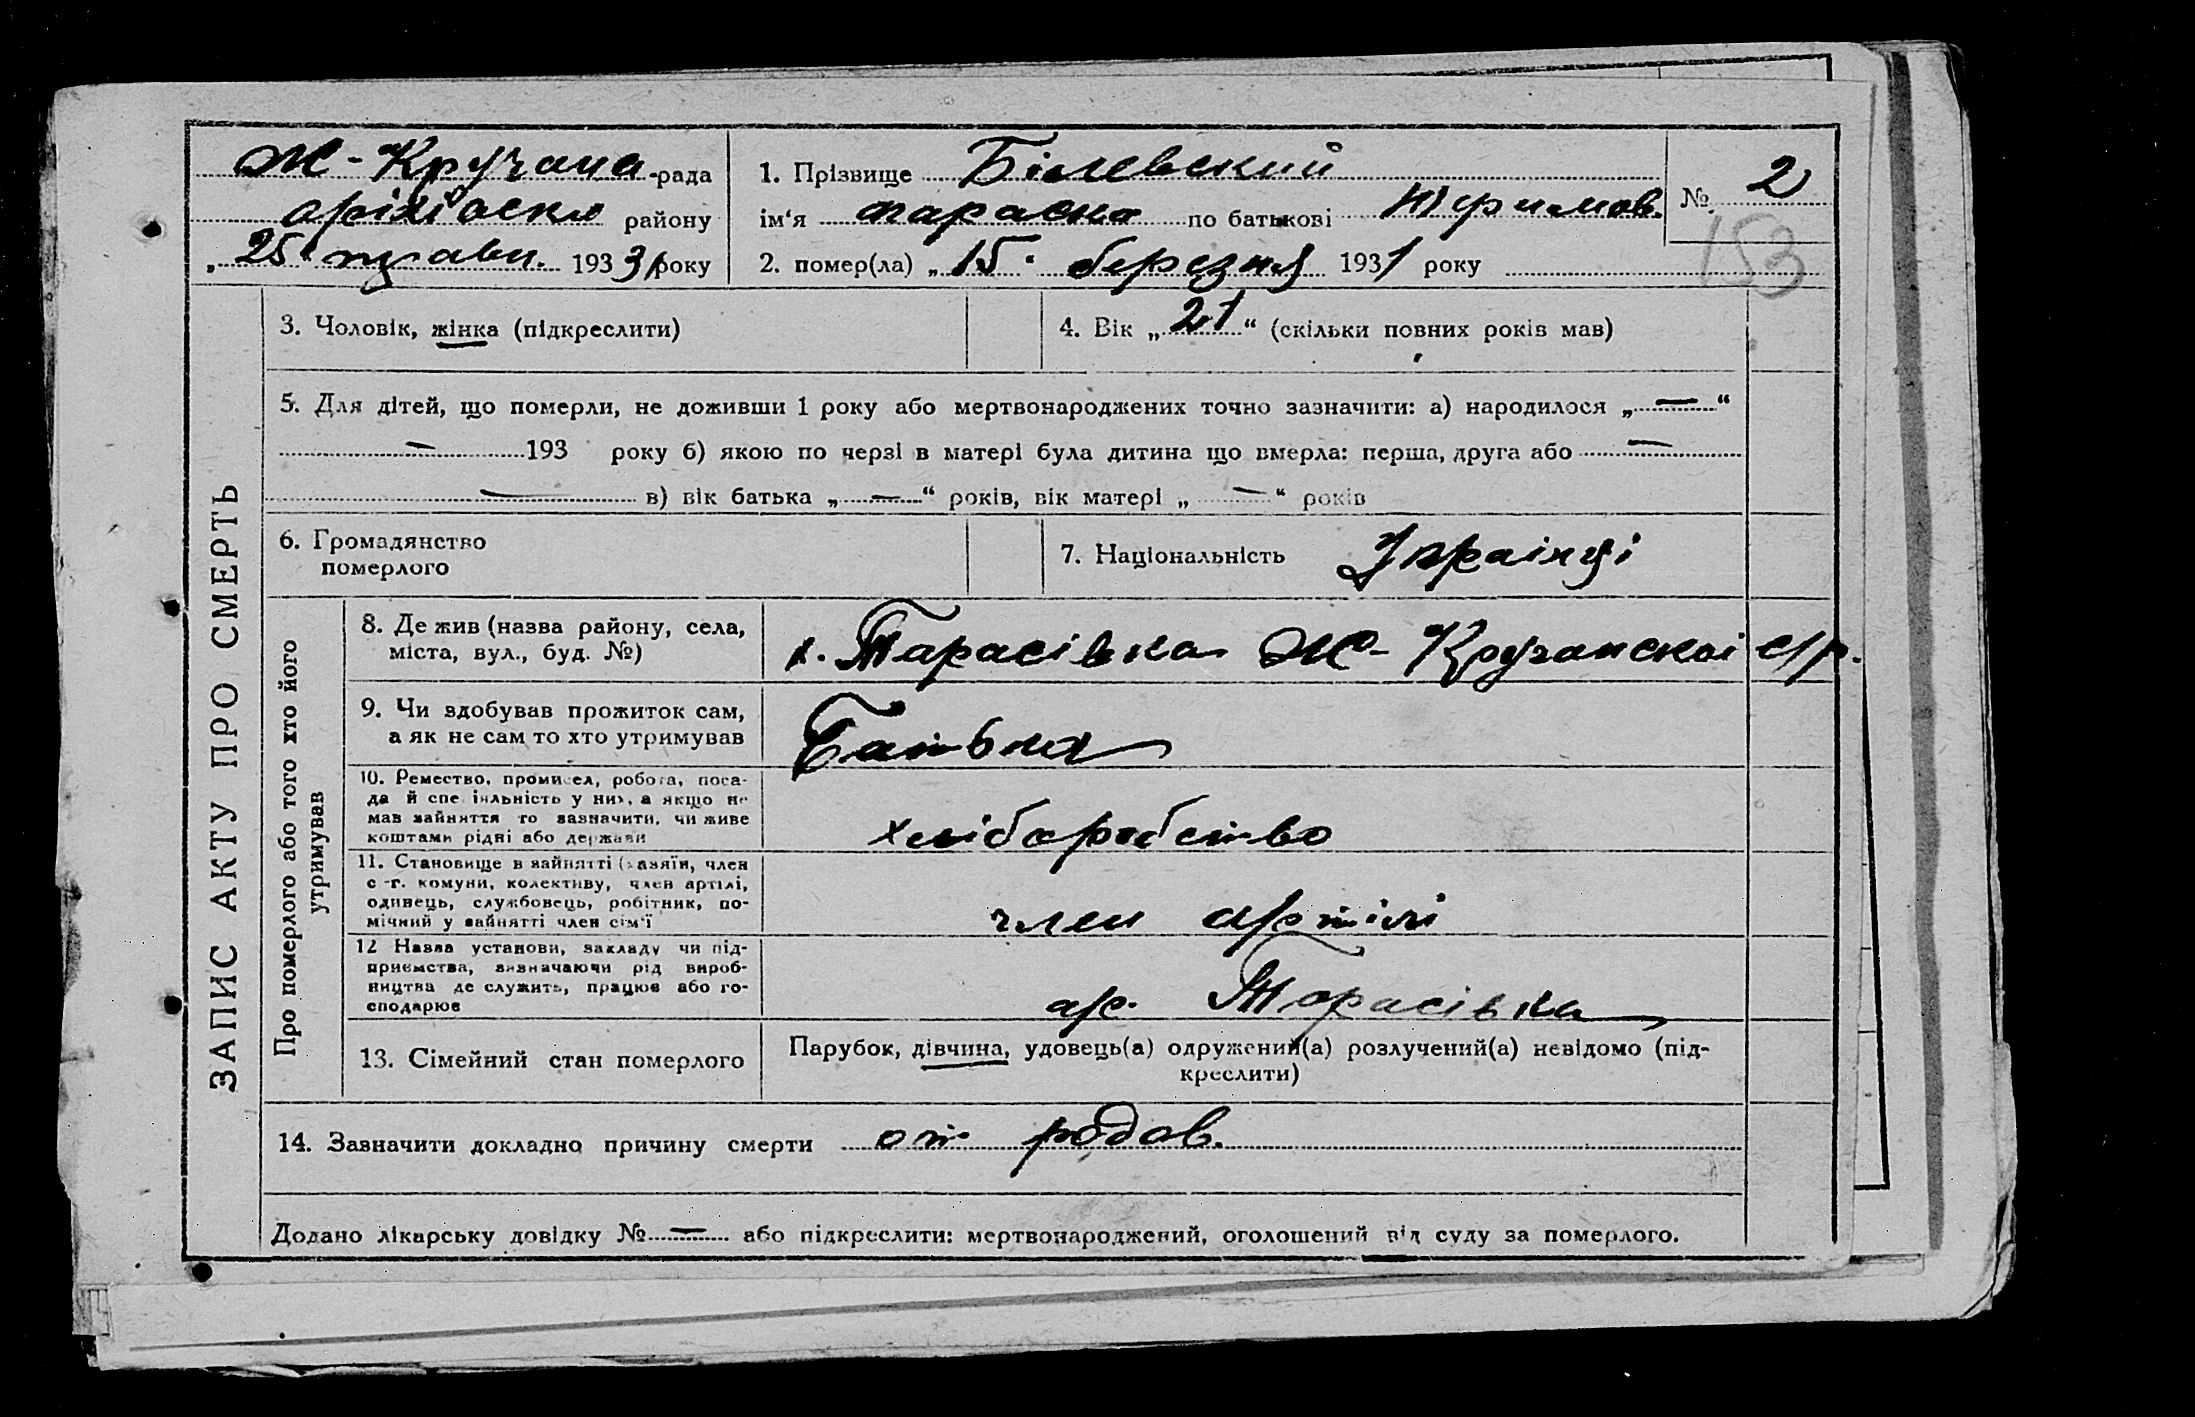 Ж-Кручана рада
району
„25“ травн. 1933 року
1. Прізвище Білевский
ім‘я Параска по батькові
2. помер(ла) „15“ березня 1931 року
№ 2
153
ЗАПИС АКТУ ПРО СМЕРТЬ
3. Чоловік, жінка (підкреслити)
4. Вік „21“ (скільки повних років мав)
5. Для дітей, що померли, не доживши 1 року або мертвонароджених точно зазначити: а) народилося „—“
— 193 року б) якою по черзі в матері була дитина що вмерла: перша, друга або —
— в) вік батька „—“ років, вік матері „—“ років
6. Громадянство
померлого
7. Національність Українці
Про померлого або того хто його
утримував
8. Де жив (назва району, села,
міста, вул., буд. №)
х. Тарасівка Ж-Кручанскоі с/р.
9. Чи здобував прожиток сам,
а як не сам то хто утримував
Батько
10. Ремество, промисел, робота, поса-
да й спеціяльність у них, а якщо не
мав зайняття то зазначити, чи живе
коштами рідні або держави
хліборобство
11. Становище в зайнятті (хазяїн, член
с-г. комуни, колективу, член артілі,
одинець, службовець, робітник, по-
мічний у зайнятті член сім‘ї
член артілі
12 Назва установи, закладу чи під-
приємства, визначаючи рід вироб-
ництва де служить, працює або го-
сподарює
ар. Тарасівка
13. Сімейний стан померлого
Парубок, дівчина, удовець(а) одружений(а) розлучений(а) невідомо (під-
креслити)
14. Зазначити докладно причину смерти от родов.
Додано лікарську довідку № — або підкреслити: мертвонароджений, оголошений від суду за померлого.